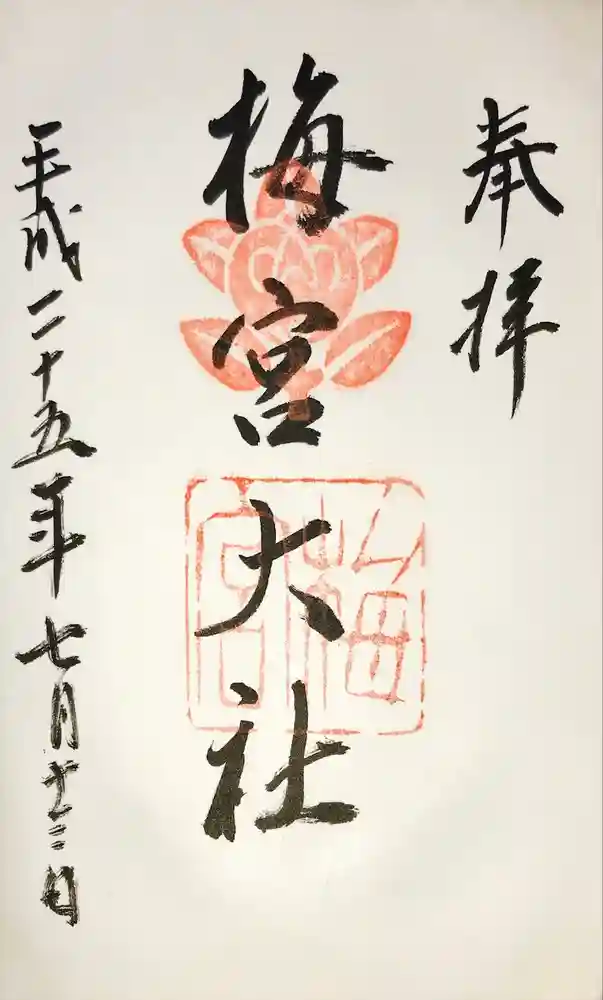 奉拝
梅宮大社
平成二十五年七月十三日
梅宮